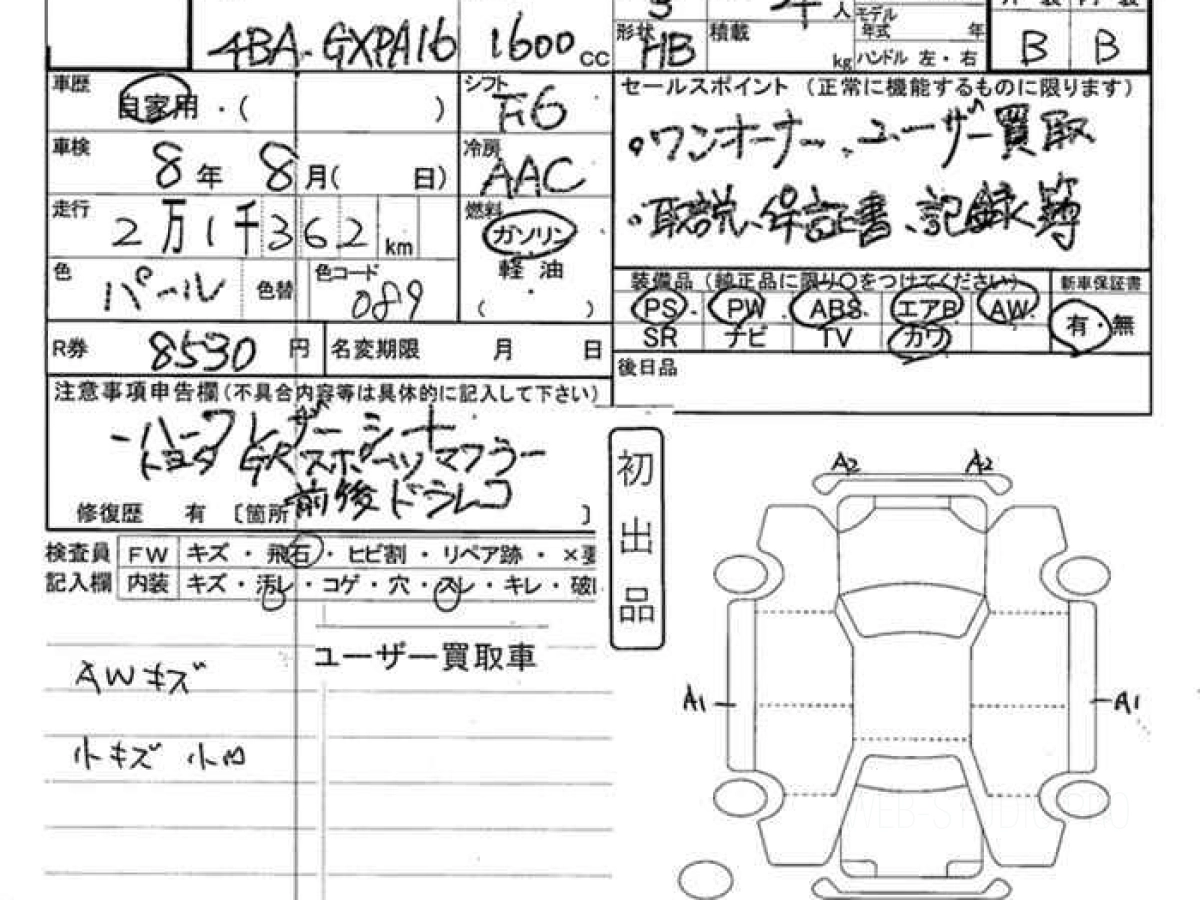 4BA-GXPA16 1600 cc
3 4 人
形状 HB 積載 kg
モデル年式 年
ハンドル 左・右
B B
車歴 自家用・( )
シフト F6
車検 8年 8月( 日)
冷房 AAC
走行 2万1千362 km
燃料 ガソリン 軽油 ・ ( )
色 パール 色替 色コード 089
R券 8530 円 名変期限 月 日
セールスポイント (正常に機能するものに限ります)
・ワンオーナー、ユーザー買取
・取説、保証書、記録簿
装備品 (純正品に限り〇をつけてください) 新車保証書
PS・ PW・ ABS・ エアB AW・ 有・無
SR ナビ TV カワ
後日品
注意事項申告欄(不具合内容等は具体的に記入して下さい)
-ハーフレザーシート
トヨタ GRスポーツマフラー
前後ドラレコ
修復歴 有 〔箇所 ]
検査員 FW キズ・飛石・ヒビ割・リペア跡・×要
記入欄 内装 キズ・汚レ・コゲ・穴・スレ・キレ・破レ
初出品
ユーザー買取車
AWキズ
小キズ 小凹
A2 A2
A1 A1